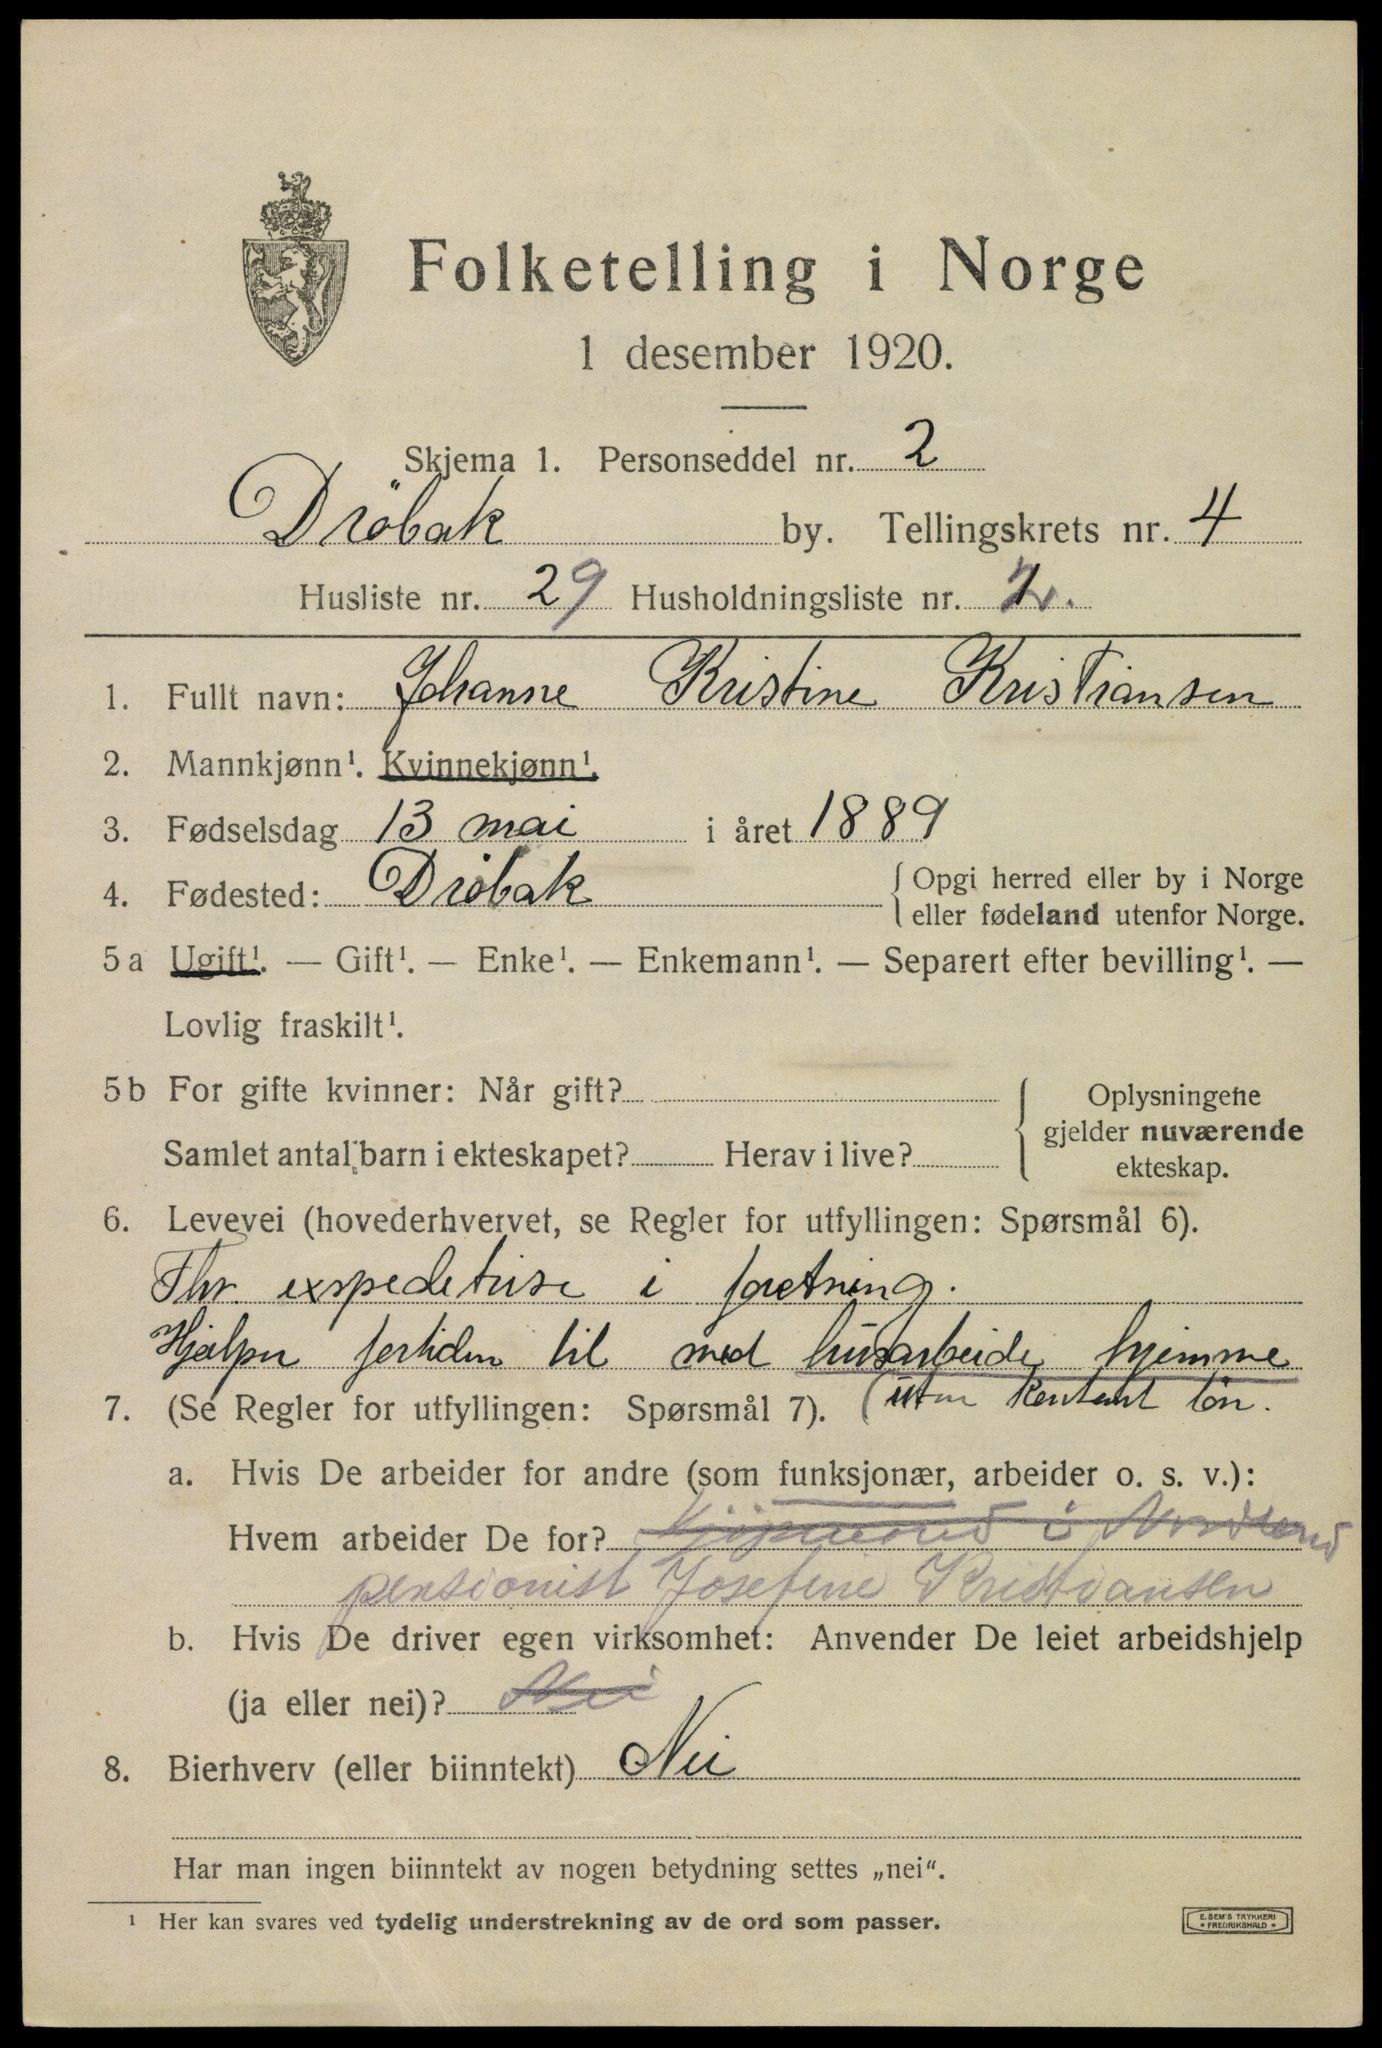 Folketelling i Norge
1 desember 1920.
Skjema 1. Personseddel nr. 2
Dröbak by. Tellingskrets nr. 4
Husliste nr. 29 Husholdningsliste nr. 2.
1. Fullt navn: Johanne Kristine Kristiansen
2. Mannkjønn¹. Kvinnekjønn¹.
3. Fødselsdag 13 mai i året 1889
4. Fødested: Dröbak
{ Opgi herred eller by i Norge
eller fødeland utenfor Norge.
5 a Ugift¹. — Gift¹. — Enke¹. — Enkemann¹. — Separert efter bevilling¹. —
Lovlig fraskilt¹.
5 b For gifte kvinner: Når gift?
Samlet antal barn i ekteskapet? Herav i live?
{ Oplysningene
gjelder nuværende
ekteskap.
6. Levevei (hovederhvervet, se Regler for utfyllingen: Spørsmål 6).
Fhv. exspeditrise i foretning.
Hjælper fortiden til med husarbeide hjemme
(uten kontant lön.
7. (Se Regler for utfyllingen: Spørsmål 7).
a. Hvis De arbeider for andre (som funksjonær, arbeider o. s. v.):
Hvem arbeider De for? i
pensionist Josefine Kristiansen
b. Hvis De driver egen virksomhet: Anvender De leiet arbeidshjelp
(ja eller nei)? Nei
8. Bierhverv (eller biinntekt) Nei
Har man ingen biinntekt av nogen betydning settes „nei“.
¹ Her kan svares ved tydelig understrekning av de ord som passer.
E. SEM'S TRYKKERI
* FREDRIKSHALD *